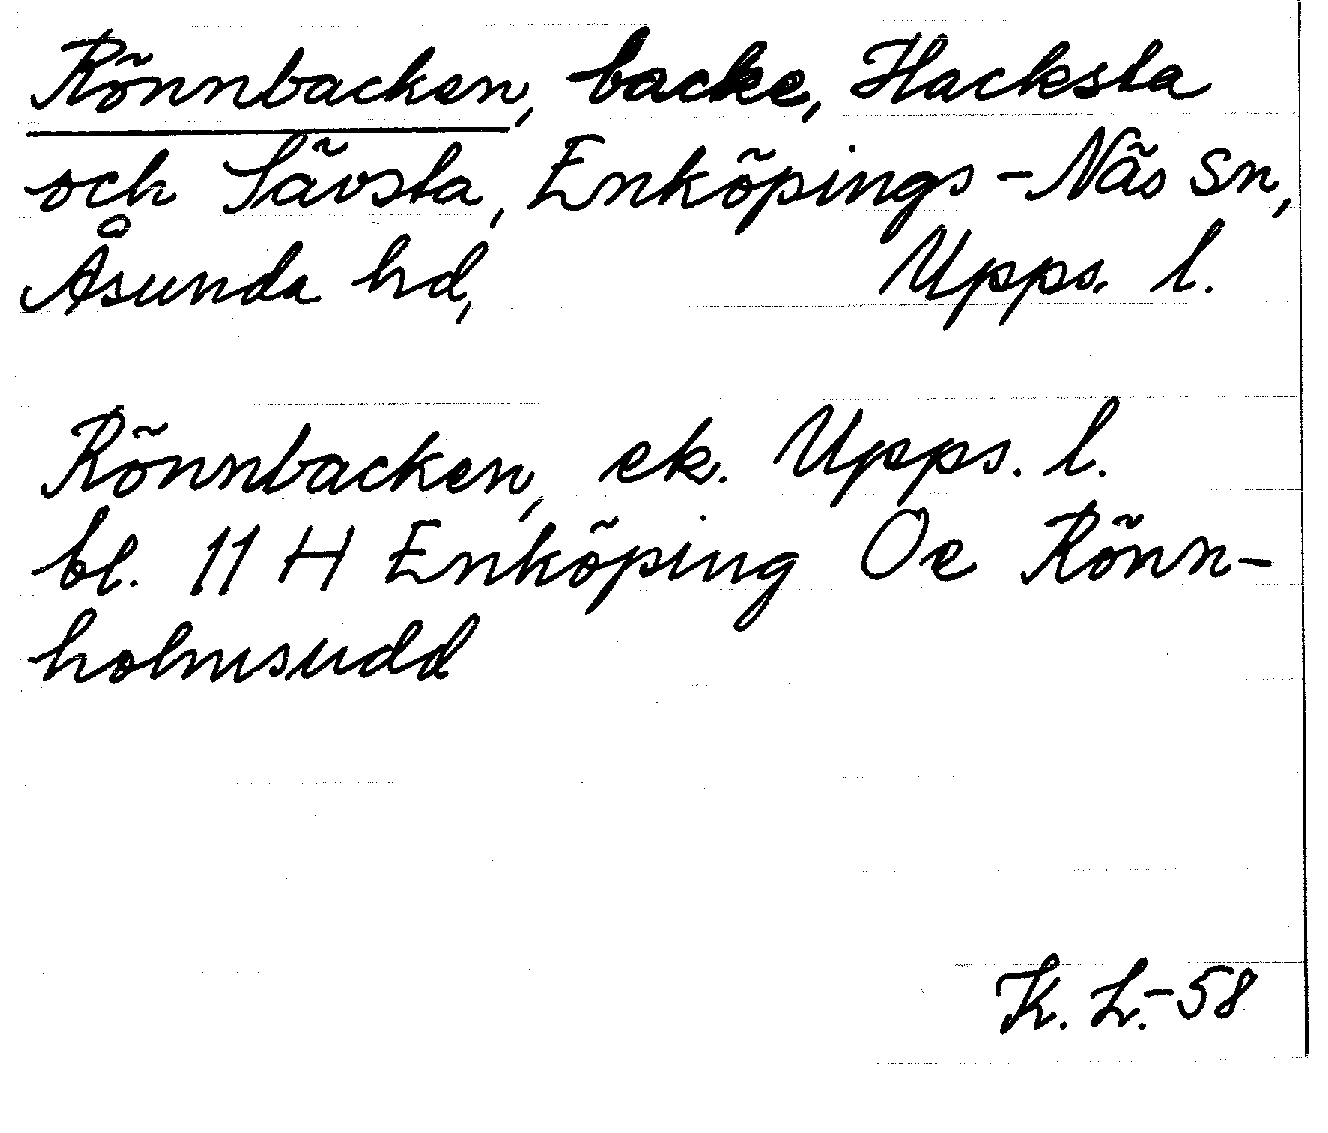 Rönnbacken, backe, Hacksta
och Sävsta, Enköpings-Näs sn,
Åsunda hd, Upps. l.
Rönnbacken, ek. Upps. l.
bl. 11 H Enköping Oe Rönn-
holmsudd
K. L.-58